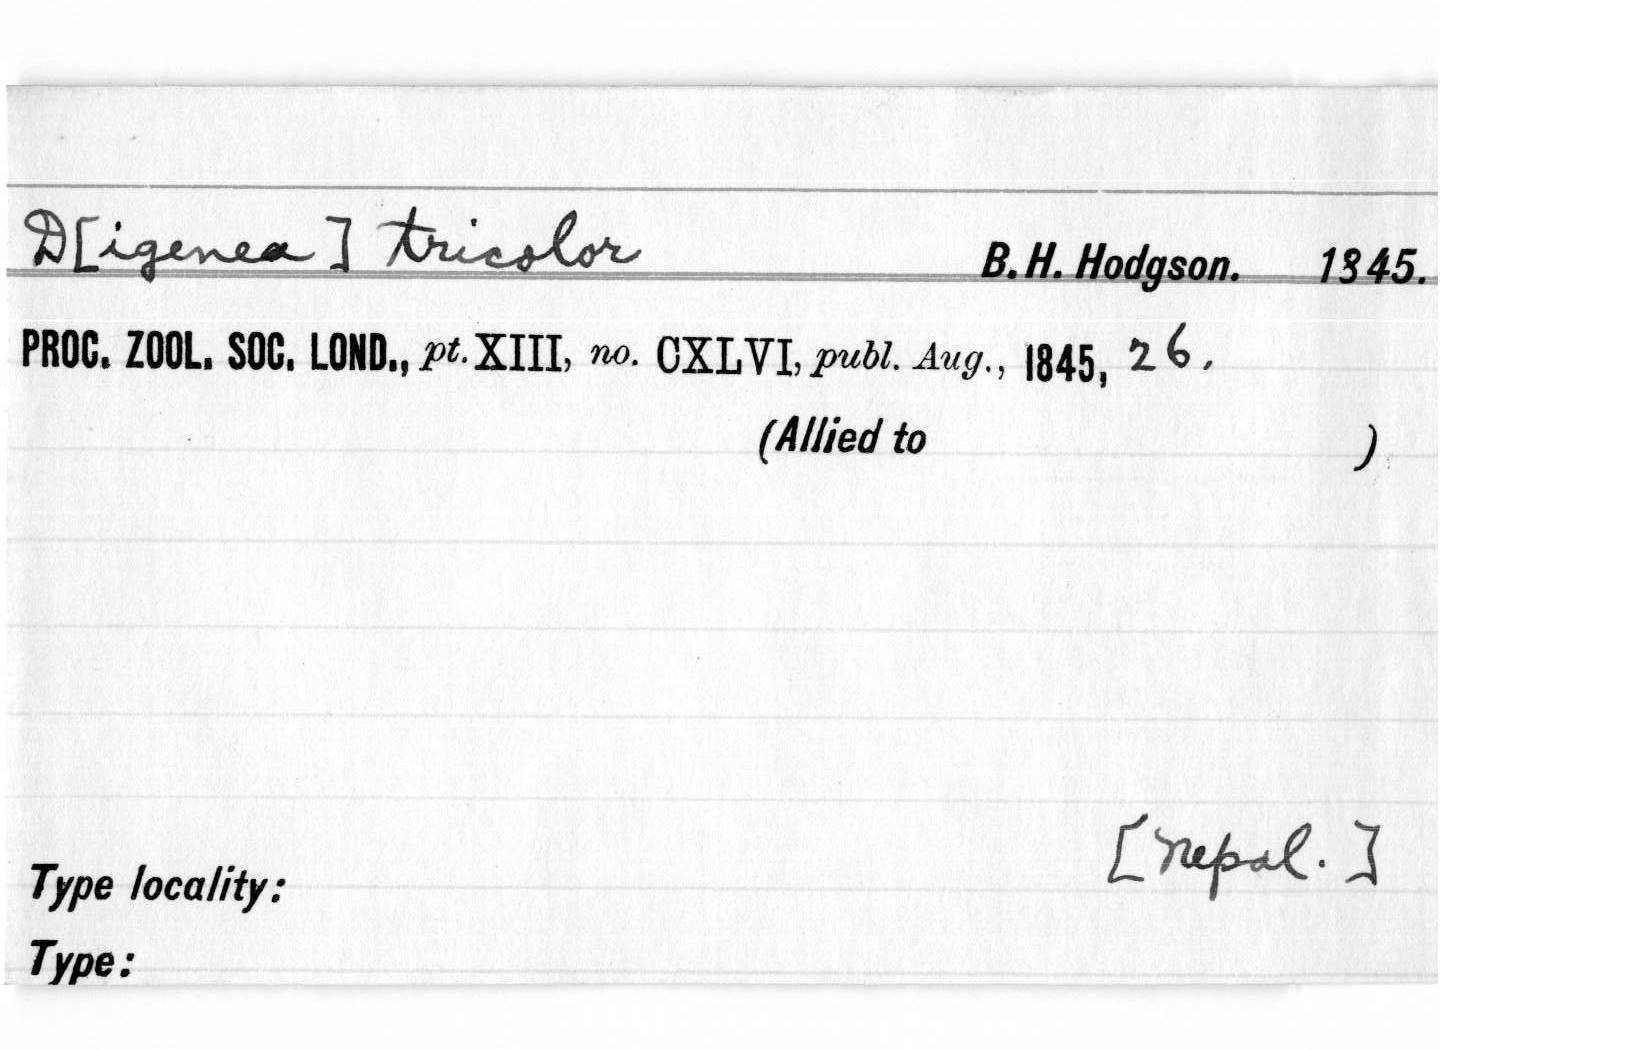 D[igenea] tricolor B. H. Hodgson. 1845.
PROC. ZOOL. SOC. LOND., pt. XIII, no. CXLVI, publ. Aug., 1845, 26.
(Allied to )
[Nepal.]
Type locality:
Type: